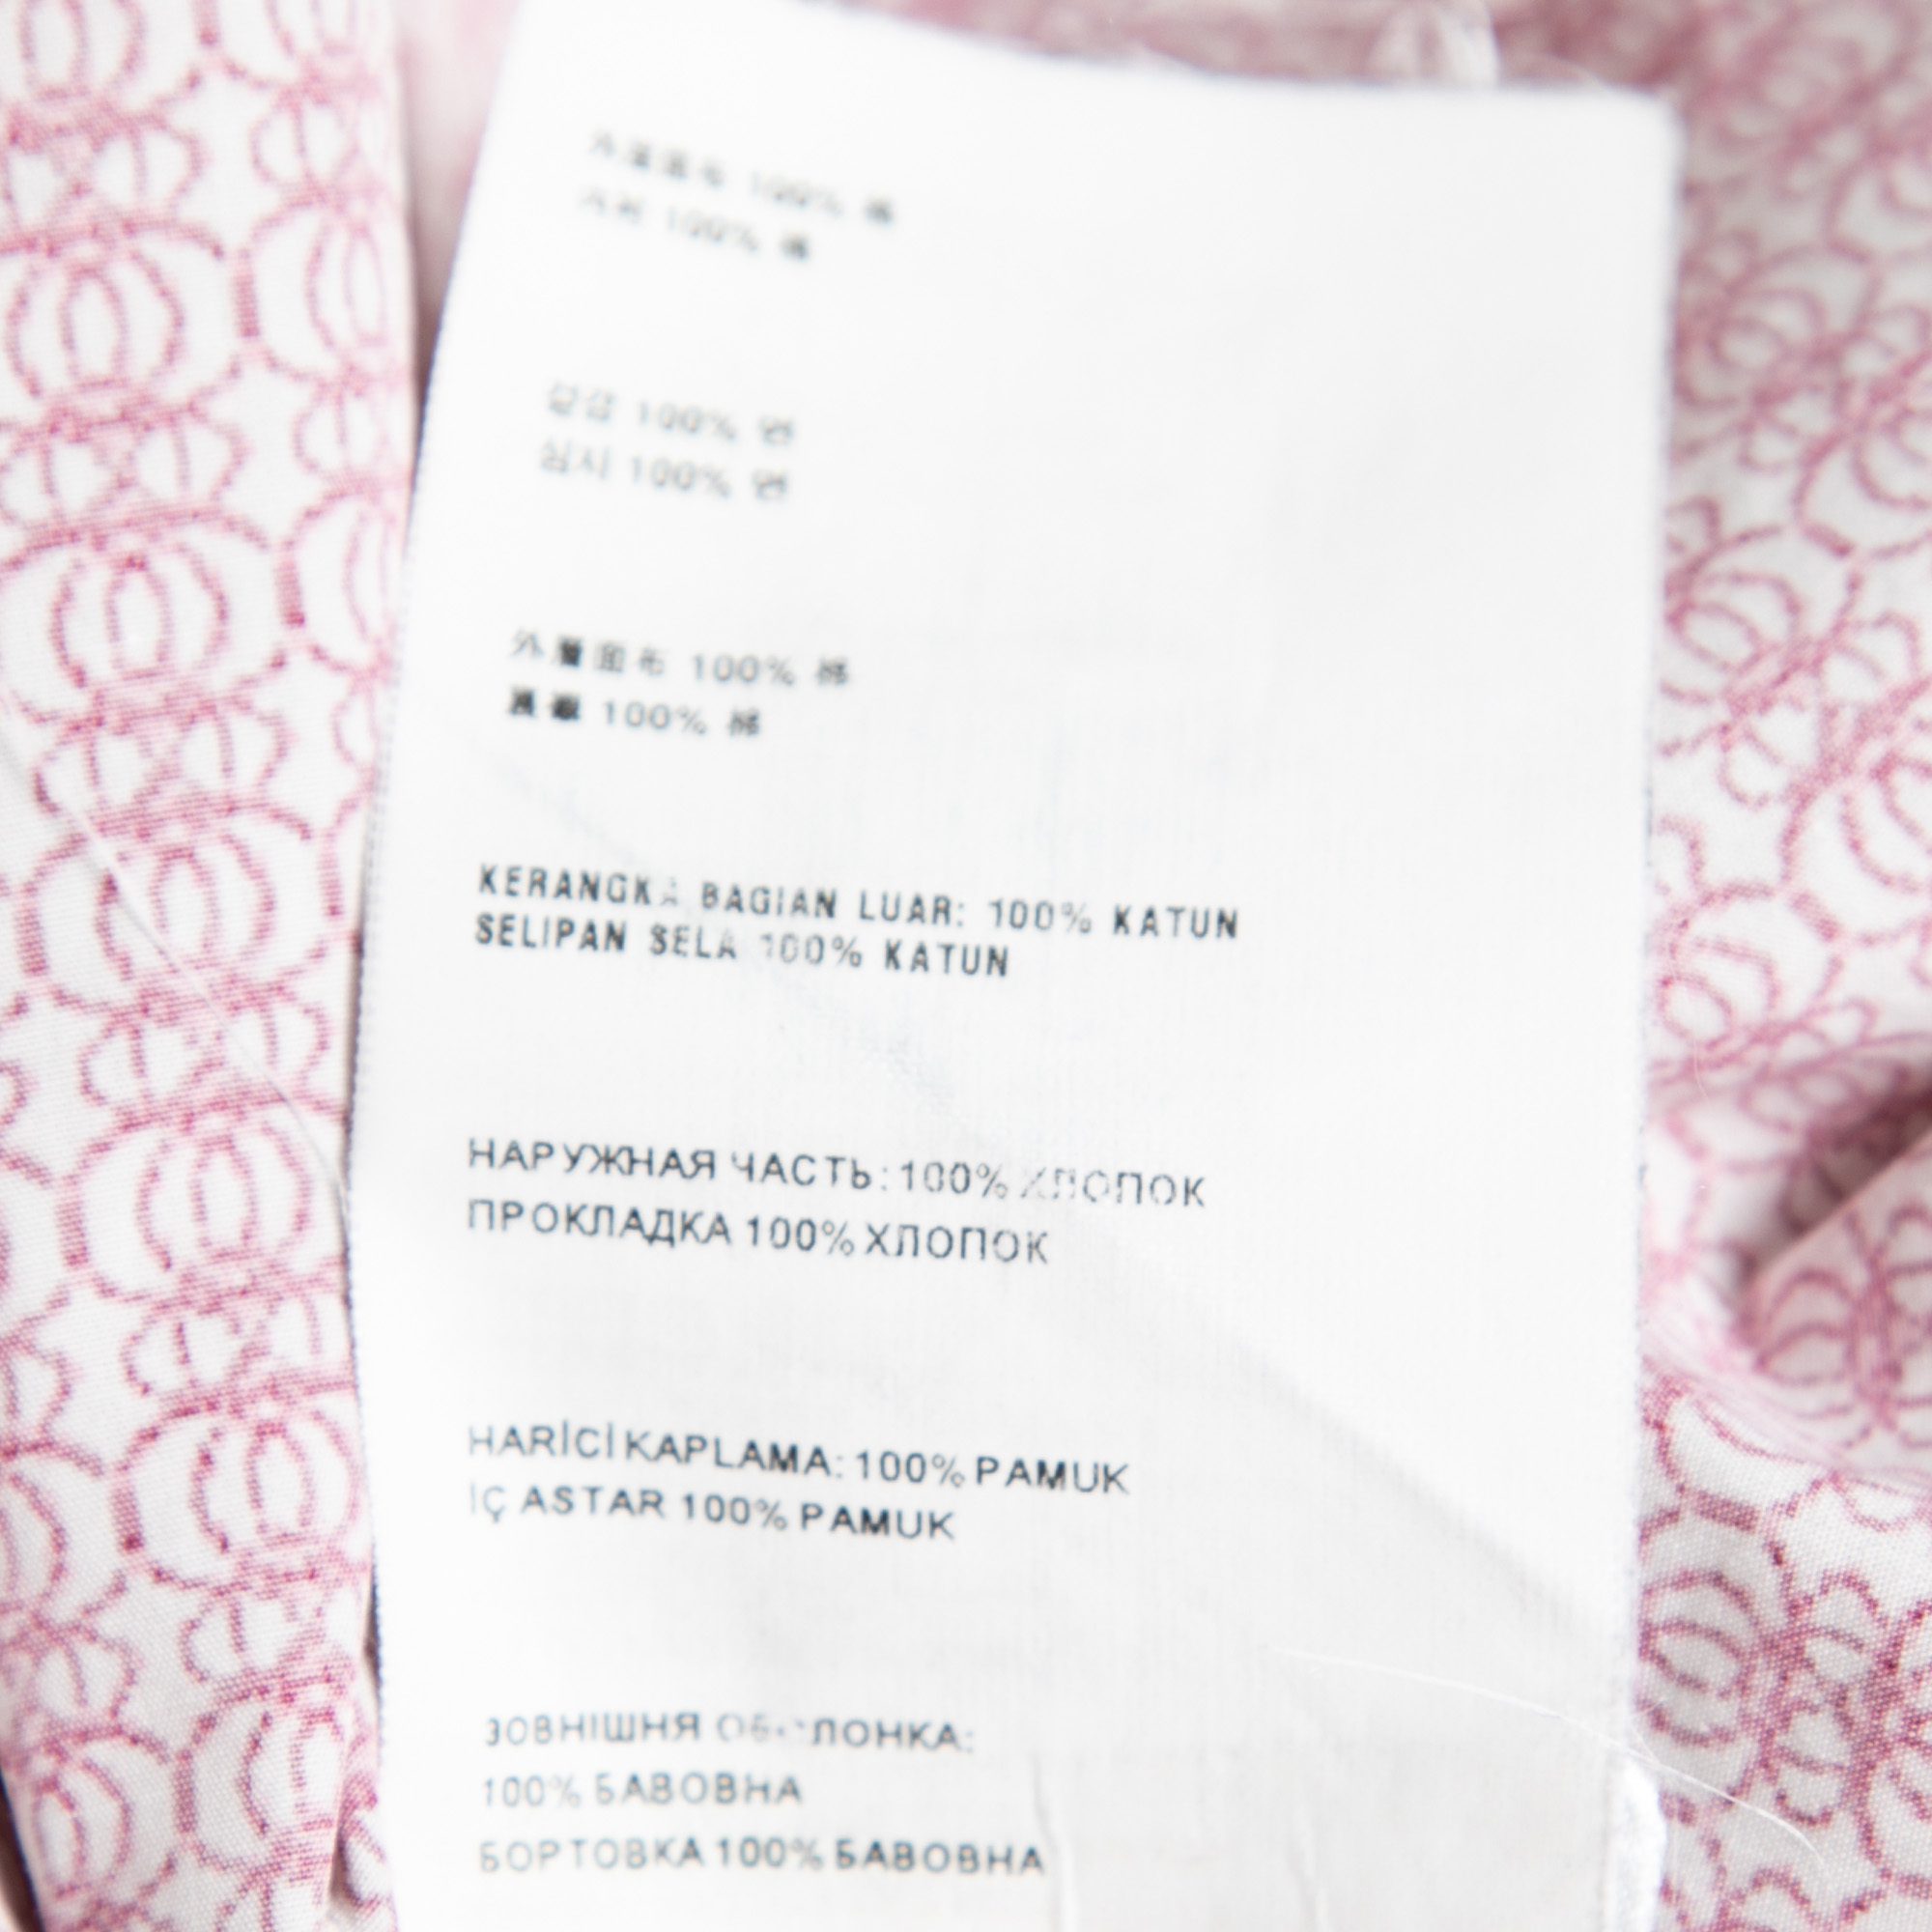 外层面布 100% 棉
内衬 100% 棉
겉감 100% 면
심지 100% 면
外層面布 100% 棉
裏襯 100% 棉
KERANGKA BAGIAN LUAR: 100% KATUN
SELIPAN SELA 100% KATUN
НАРУЖНАЯ ЧАСТЬ: 100% ХЛОПОК
ПРОКЛАДКА 100% ХЛОПОК
HARİCİ KAPLAMA: 100% PAMUK
İÇ ASTAR 100% PAMUK
ЗОВНІШНЯ ОБОЛОНКА:
100% БАВОВНА
БОРТОВКА 100% БАВОВНА